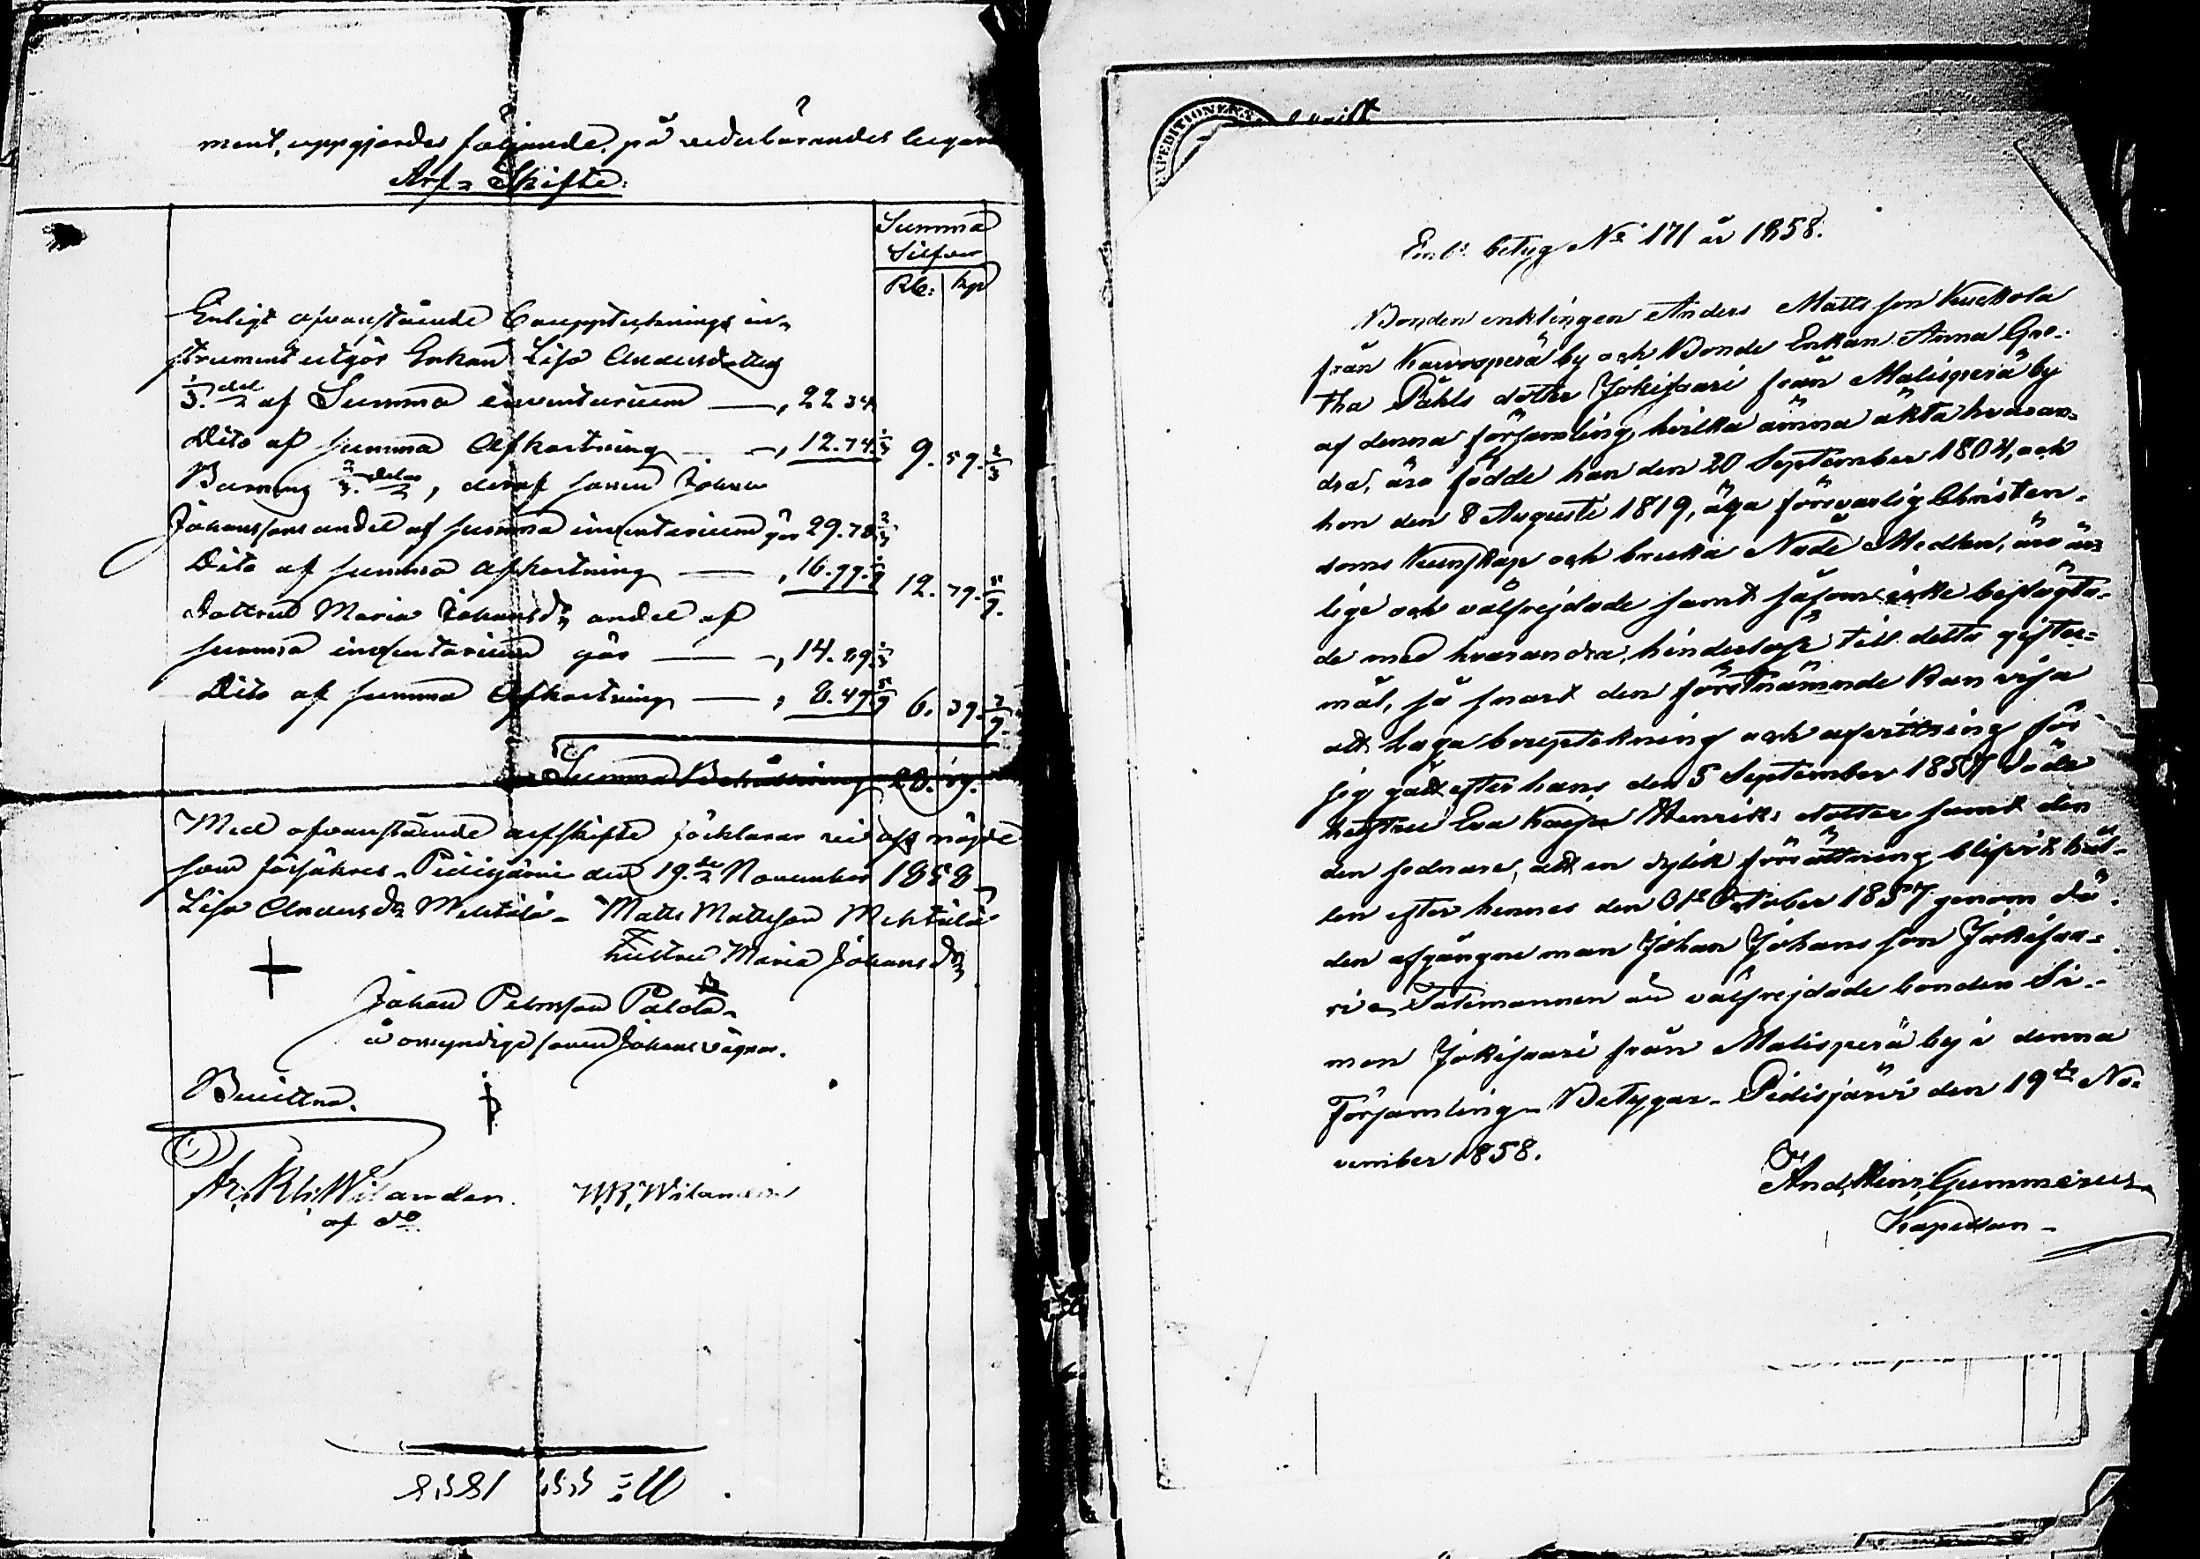 ment, uppgjordes följande, på vederbörandes begäran
Arf-Skifte:
Summa
Silfver
Rbl: kop
Enligt ofvanstående bouppteknings in-
strument utgör Enkan Lisa Andersdotters
1/3. del af Summa inventarium —, 22 34
Dito af summa Afkortning —, 12.74.1/3 9. 59. 2/3
Barnens 2/3. delar, deraf sonen Johan
Johanssons andel af summa inventarium gör 29.78 2/3
Dito af summa afkortning —, 16.99. 12. 79. 5/9.
Dottren Maria Johansdr andel af
summa inventarium gör —, 14.89 1/3
Dito af summa Afkortning —, 8.49 5/9 6. 39. 7/9.
Summa Behållning 28.
Med ofvanstående arfskifte förklarar vi oss nöjde
som försäkres. Pidisjärvi den 19de November 1858
Lisa Andersdr Mehtälä - Matts Mattsson Mehtälä
hustru Maria Johansdr
Johan Petersson Palola
å omyndige sonen Johans vägnar.
Bevittna.
Wilander. W.R. Wilander
af do
EXPEDITIONENS
Embs betyg No 171 år 1858.
Bonden enklingen Anders Mattsson Kuckola
från Karvosperä by och Bonde Enkan Anna Gre-
tha Påhls dotter Jokisaari från Malisperä by
af denna församling, hvilka ämna äkta hvaran-
dra, äro födde han den 20 September 1804, och
hon den 8 Augusti 1819, äga försvarlig Christen-
doms kunskap och bruka Nåde Medlen, äro är-
lige och välfrejdade samt såsom icke beslägta-
de med hvarandra, hinderlöse till detta gifter-
mål, så snart den förstnämnde kan visa
att laga bouptekning och afvittring för
sig gått efter hans den 5 September 1857 döde
hustru Eva Kaisa Henriks dotter samt den
den sednare, att en dylik förrättning blifvit hål-
len efter hennes den 31 October 1857 genom dö-
den afgångne man Johan Johans son Jokisaa-
ri. Talemannen är välfrejdade bonden Si-
mon Jokisaari från Malisperä by i denna
Församling. Betygar. Pidisjärvi den 19de No-
vember 1858.
And. Henr. Gummerus
Kapellan